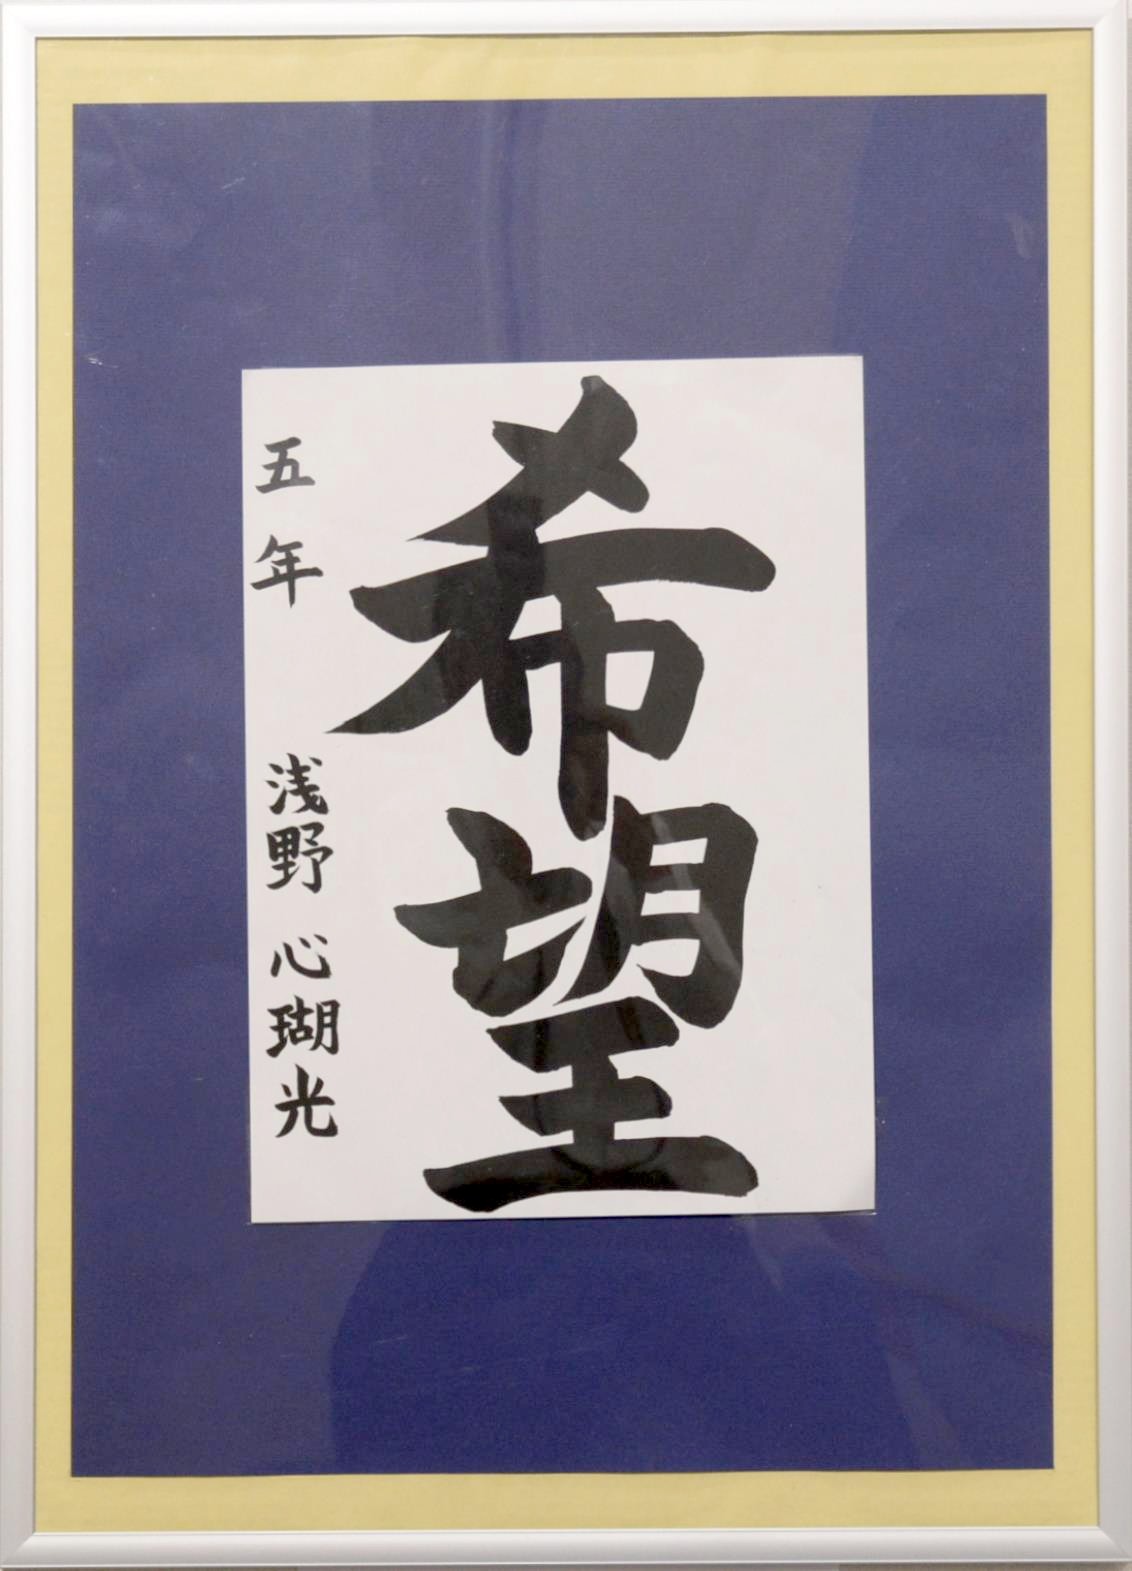 希望
五年 浅野心瑚光